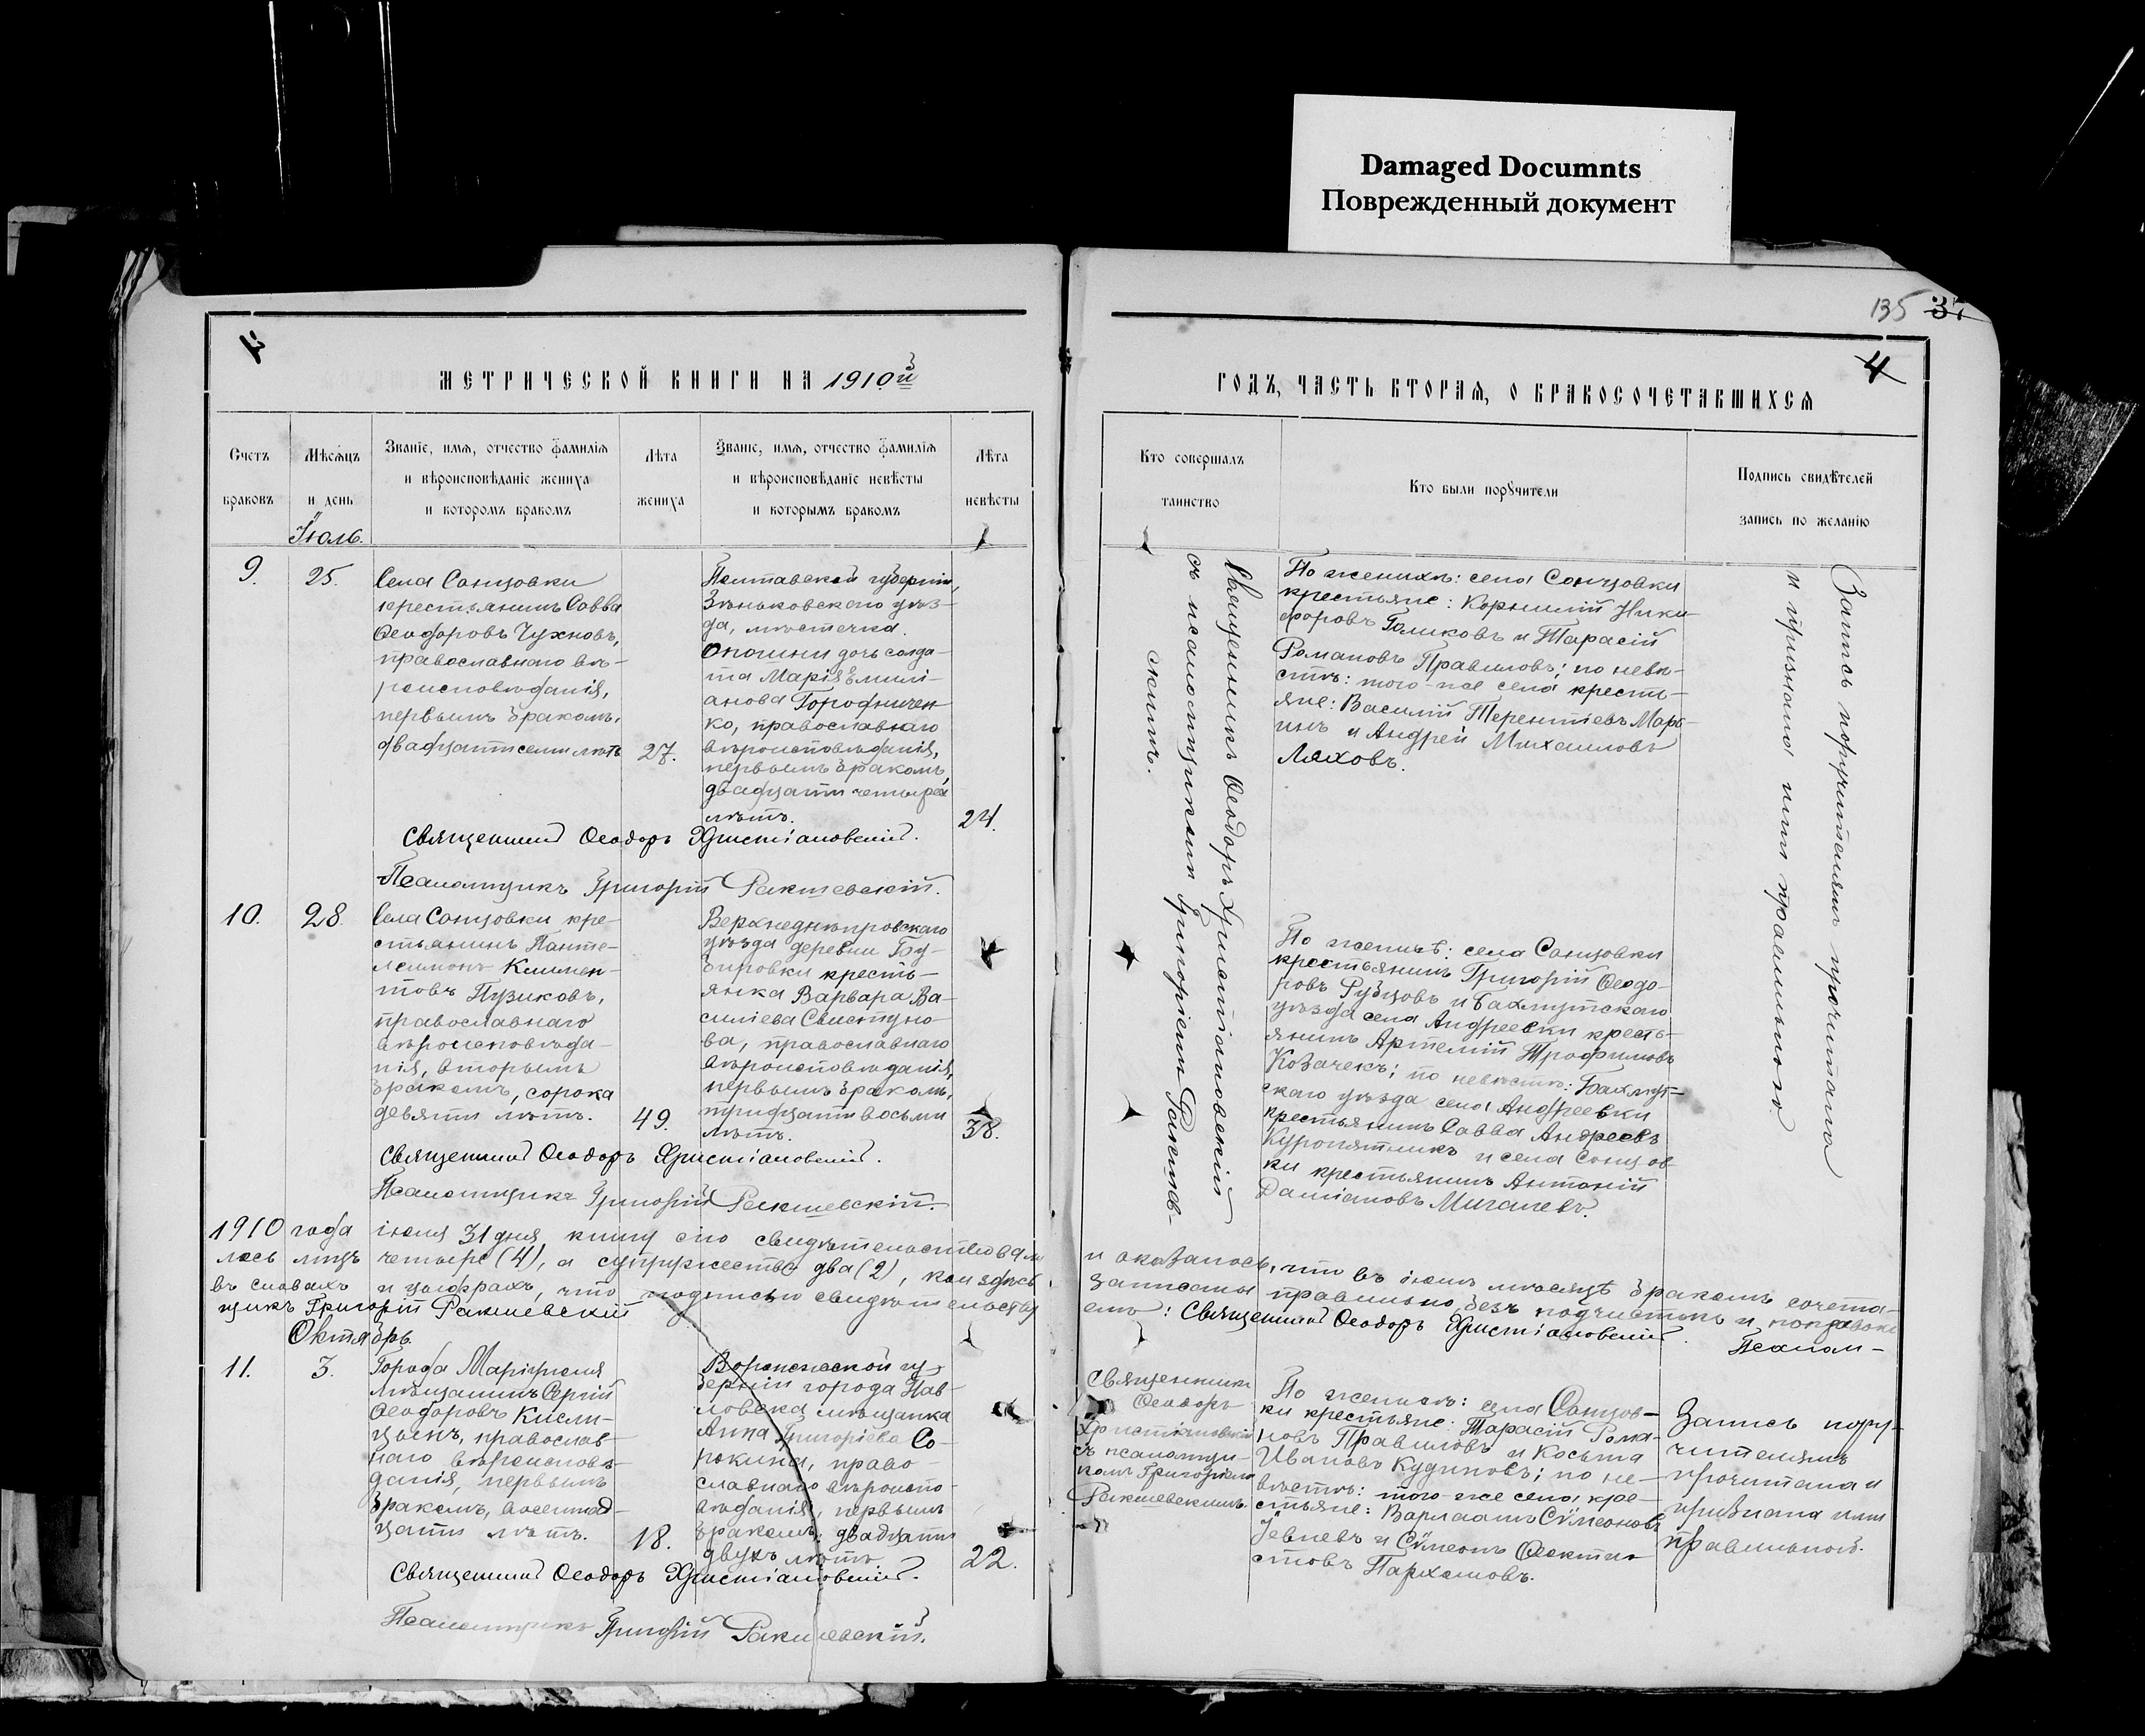 Damaged Documnts
Поврежденный документ
135 37
4
4
МЕТРИЧЕСКОЙ КНИГИ НА 1910й
ГОДЪ, ЧАСТЬ ВТОРАЯ, О БРАКОСОЧЕТАВШИХСЯ
Счетъ браковъ
Мѣсяцъ и день
Званіе, имя, отчество фамилія
и вѣроисповѣданіе жениха
и которомъ бракомъ
Лѣта жениха
Званіе, имя, отчество фамилія
и вѣроисповѣданіе невѣсты
и которымъ бракомъ
Лѣта невѣсты
Кто совершалъ таинство
Кто были поручители
Подпись свидѣтелей
запись по желанію
Іюль.
9.
25.
Села Сонцовки
крестьянинъ Савва
Ѳеодоровъ Чухновъ,
православнаго вѣ-
роисповѣданія,
первымъ бракомъ,
двадцати семи лѣтъ
27.
Полтавской губерніи,
Зѣньковскаго уѣз-
да, мѣстечка
Опошни дочь солда-
та Марія Емилі-
анова Городничен
ко, православнаго
вѣроисповѣданія,
первымъ бракомъ,
двадцати четырех
лѣтъ.
24.
Священникъ Ѳеодоръ Христіановскій
съ псаломщикомъ Григоріемъ Ракшев-
скимъ.
По женихѣ: села Сонцовки
крестьяне: Корнилій Ники-
форовъ Голиковъ и Тарасій
Романовъ Правиловъ; по невѣ-
стѣ: того-же села кресть-
яне: Василій Терентіевъ Марь-
инъ и Андрей Михаиловъ
Ляховъ.
Запись поручителямъ прочитана
и признана ими правильною.
Священникъ Ѳеодоръ Христіановскій.
Псаломщикъ Григорій Ракшевскій.
10.
28.
Села Сонцовки кре-
стьянинъ Панте-
леимонъ Климен-
товъ Пузиковъ,
православнаго
вѣроисповѣда-
нія, вторымъ
бракомъ, сорока
девяти лѣтъ.
49.
Верхнеднѣпровскаго
уѣзда деревни
кресть-
янка Варвара Ва-
силіева Свистуно-
ва, православнаго
вѣроисповѣданія,
первымъ бракомъ,
тридцати восьми
лѣтъ.
38.
По женихѣ: села Сонцовки
крестьянинъ Григорій Ѳеодо-
ровъ Рубцовъ и Бахмутскаго
уѣзда села Андреевки кресть-
янинъ Артемій Трофимовъ
Козачекъ; по невѣстѣ: Бахмут-
скаго уѣзда села Андреевки
крестьянинъ Савва Андреевъ
Куропятникъ и села Сонцов-
ки крестьянинъ Антоній
Даміановъ
Священникъ Ѳеодоръ Христіановскій.
Псаломщикъ Григорій Ракшевскій.
1910 года іюля 31 дня книгу сію свидѣтельствовали
и оказалось, что въ іюлѣ мѣсяцѣ бракомъ сочета-
лось лицъ четыре (4), а супружествъ два (2), кои здѣсь
записаны правильно, безъ подчистокъ и поправокъ
въ словахъ и цыфрахъ, что подписью свидѣтельству
емъ: Священникъ Ѳеодоръ Христіановскій. Псалом-
щикъ Григорій Ракшевскій
Октябрь
11.
3.
Города Маріуполя
мѣщанинъ Сергій
Ѳеодоровъ Кисли-
цынъ, православ-
наго вѣроисповѣ-
данія, первымъ
бракомъ, восемнад-
цати лѣтъ.
18.
Воронежской гу-
берніи города Пав-
ловска мѣщанка
Анна Григоріева Со-
рокина, право-
славнаго вѣроиспо-
вѣданія, первымъ
бракомъ, двадцати
двухъ лѣтъ.
22.
Священникъ
Ѳеодоръ
Христіановскій
съ псаломщи-
комъ Григоріемъ
Ракшевскимъ.
По женихѣ: села Сонцов-
ки крестьяне: Тарасій Рома-
новъ Правиловъ и Косьма
Ивановъ Кудиновъ; по не-
вѣстѣ: того-же села кре-
стьяне: Варлаамъ Сѵмеоновъ
Іевлевъ и Сѵмеонъ Ѳеокти-
стовъ Пархомовъ.
Запись пору-
чителямъ
прочитана и
признана ими
правильной.
Священникъ Ѳеодоръ Христіановскій.
Псаломщикъ Григорій Ракшевскій.